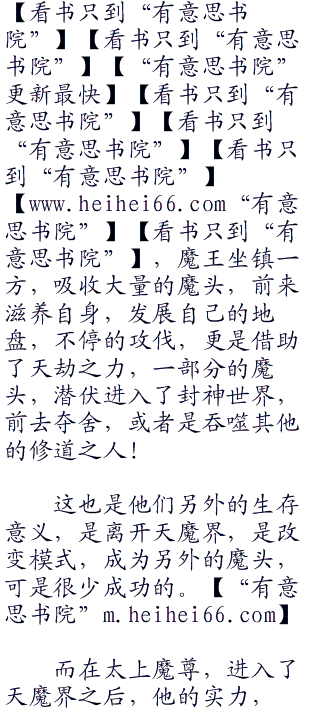 【看书只到“有意思书
院”】【看书只到“有意思
书院”】【“有意思书院”
更新最快】【看书只到“有
意思书院”】【看书只到
“有意思书院”】【看书只
到“有意思书院”】
【www.heihei66.com“有意
思书院”】【看书只到“有
意思书院”】，魔王坐镇一
方，吸收大量的魔头，前来
滋养自身，发展自己的地
盘，不停的攻伐，更是借助
了天劫之力，一部分的魔
头，潜伏进入了封神世界，
前去夺舍，或者是吞噬其他
的修道之人！
这也是他们另外的生存
意义，是离开天魔界，是改
变模式，成为另外的魔头，
可是很少成功的。【“有意
思书院”m.heihei66.com】
而在太上魔尊，进入了
天魔界之后，他的实力，